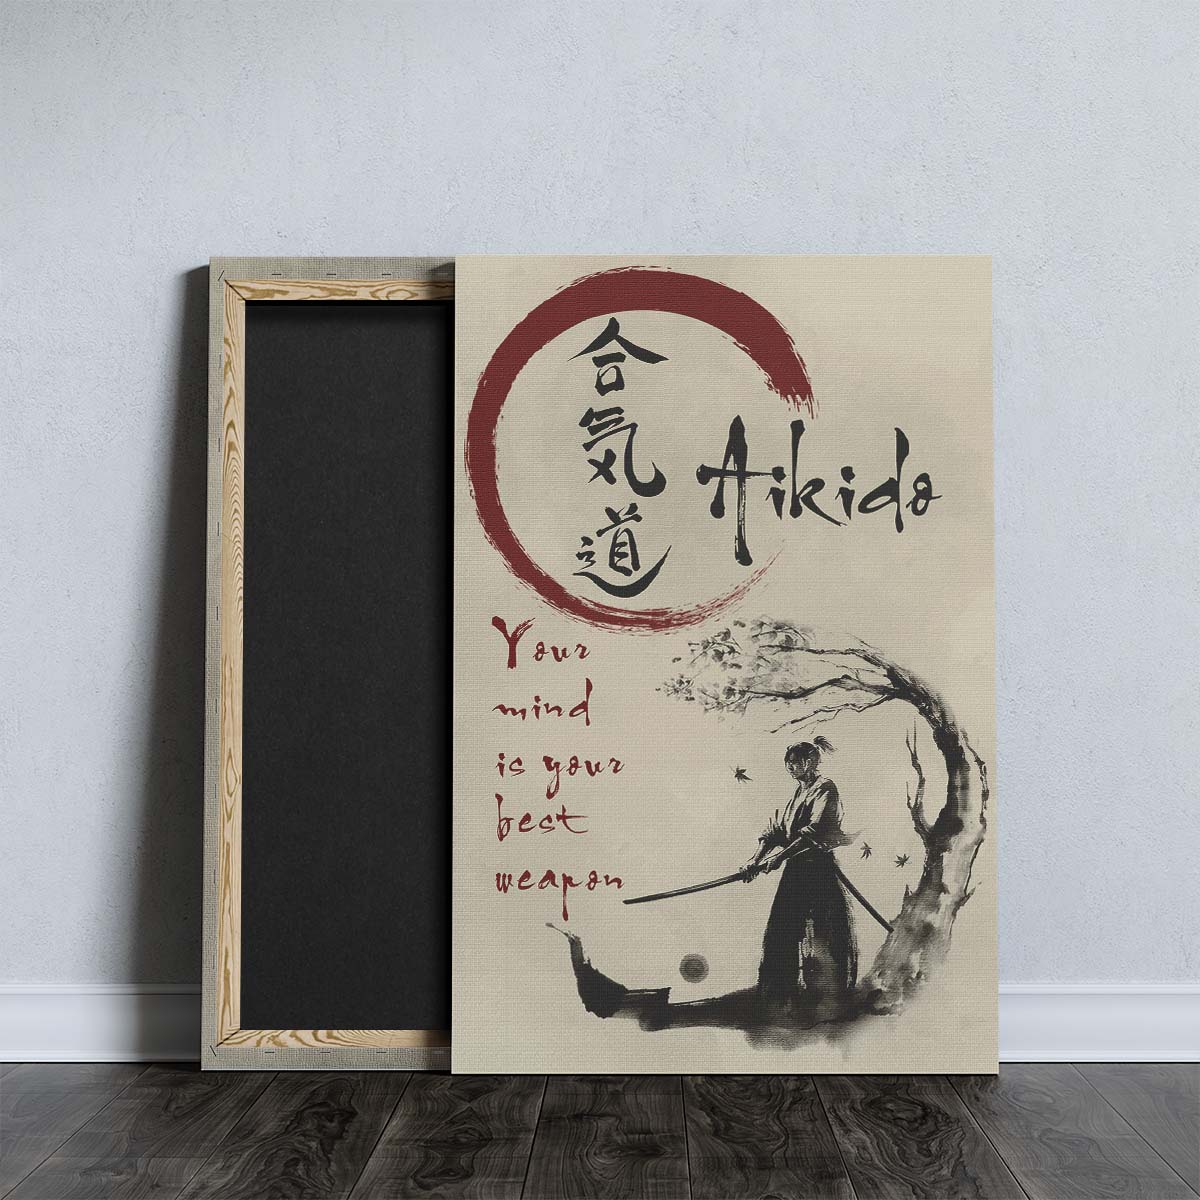 合
気
道
Aikido
Your
mind
is your
best
weapon